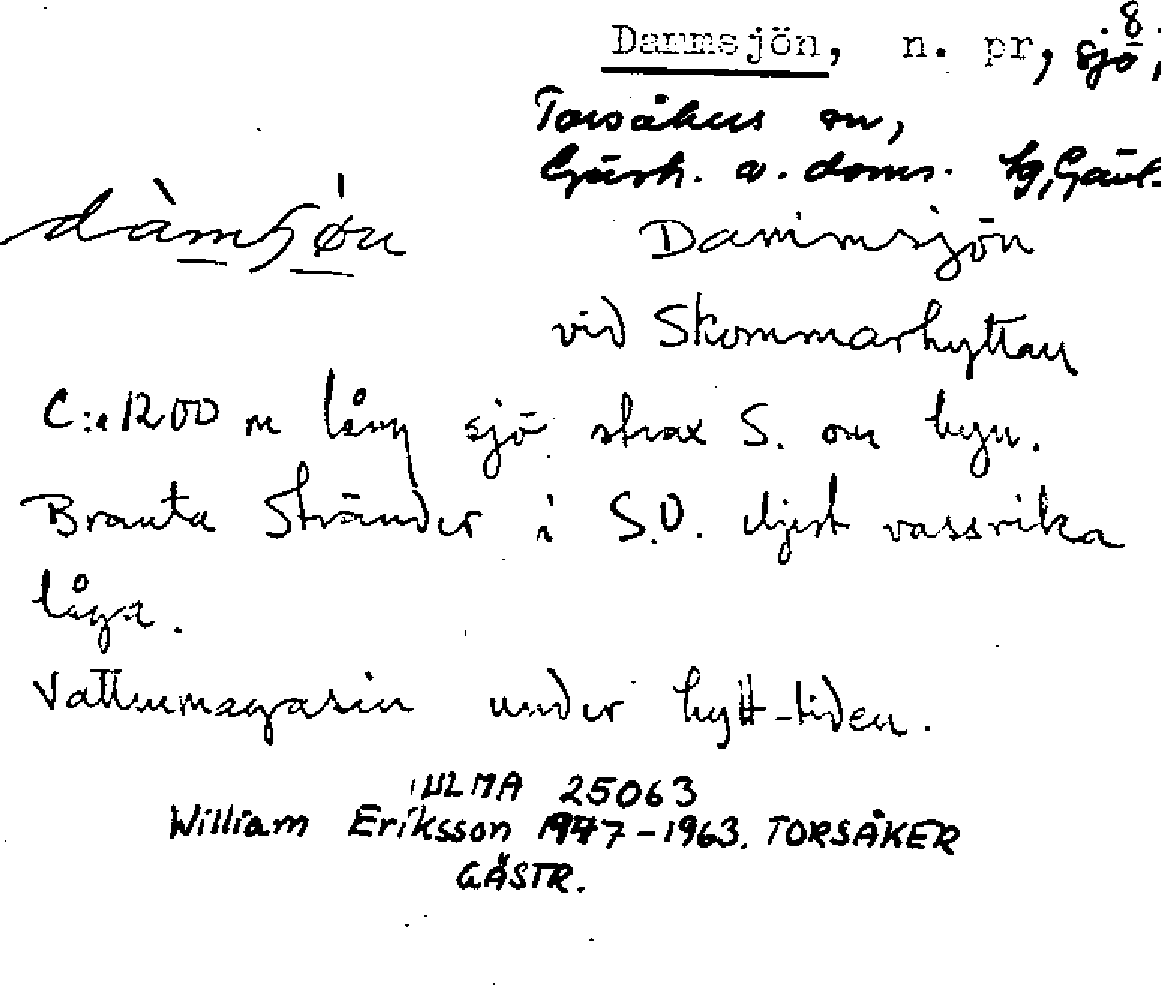 Dammsjön, n. pr, sjö 8,
Torsåkers sn,
Gästr. ö. doms. hg, Gävl.
dàmʃǿn Dammsjön
vid Skommarhyttan
C:a 1200 m lång sjö strax S. om byn.
Branta Stränder i S.O. eljest vassrika
låga.
Vattenmagasin under hytt-tiden.
ULMA 25063
William Eriksson 1947-1963. TORSÅKER
GÄSTR.